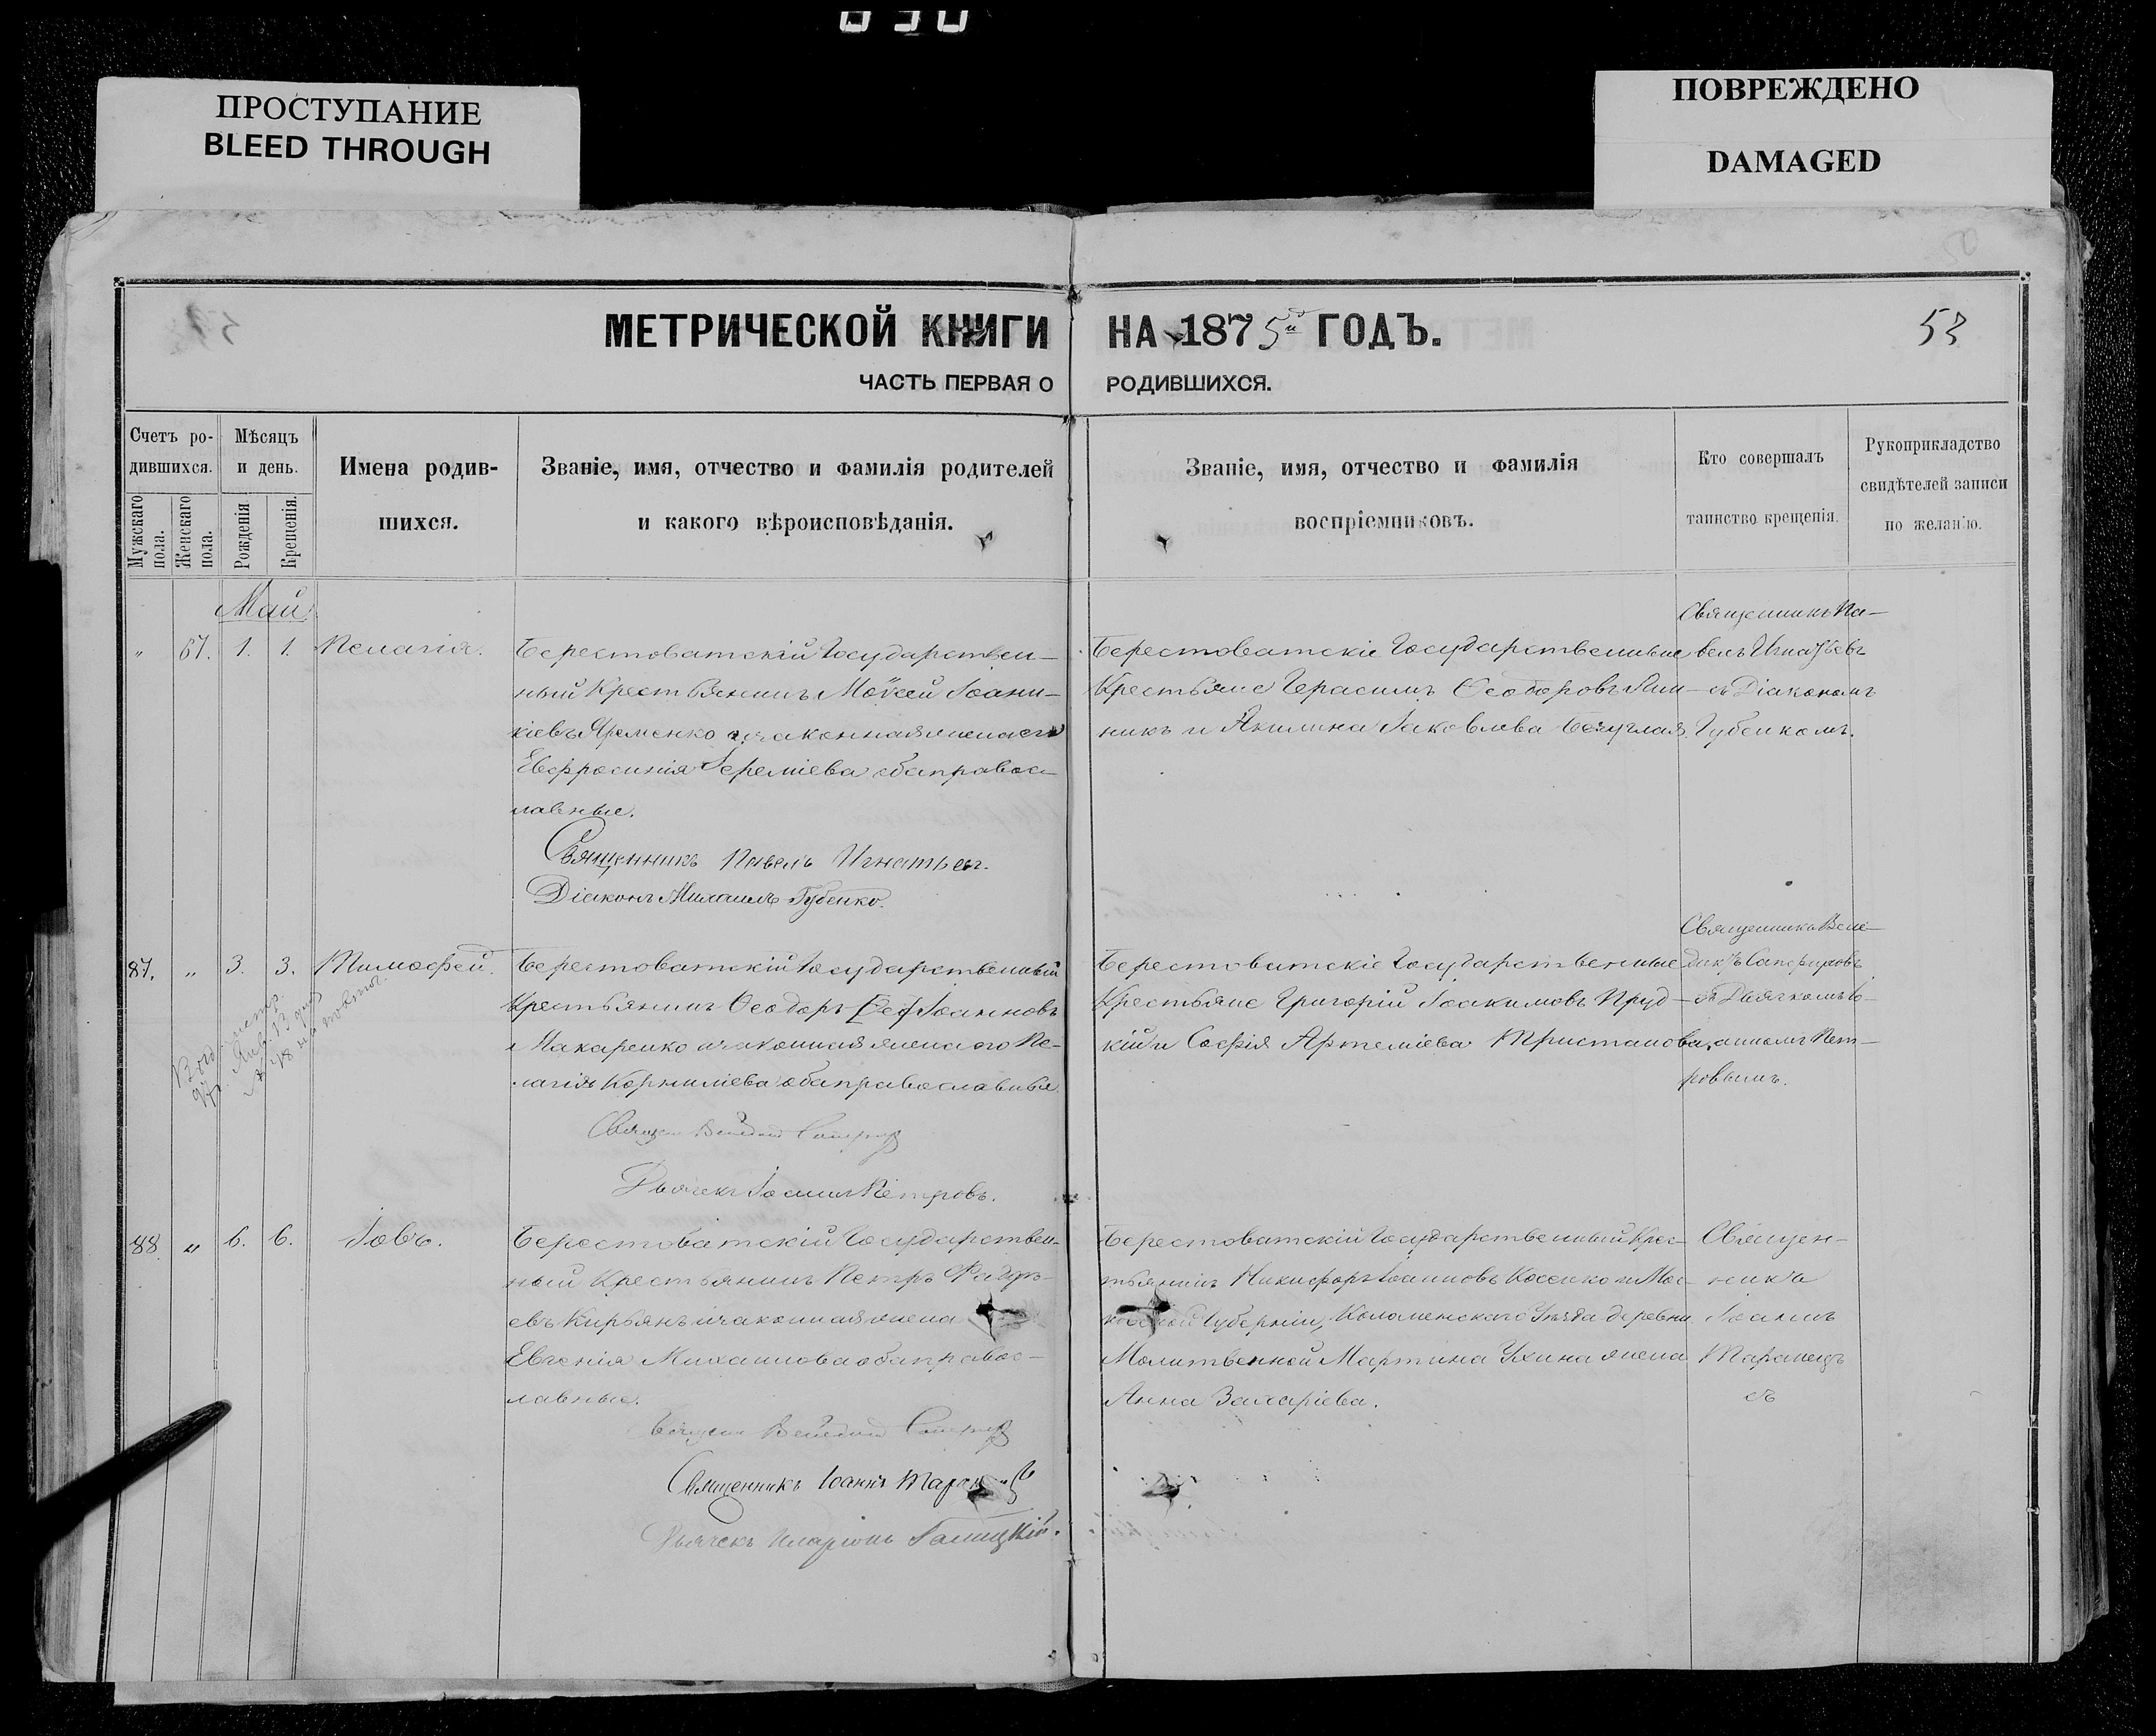 ПРОСТУПАНИЕ
BLEED THROUGH
ПОВРЕЖДЕНО
DAMAGED
МЕТРИЧЕСКОЙ КНИГИ НА 1875й ГОДЪ.
53
ЧАСТЬ ПЕРВАЯ О РОДИВШИХСЯ.
Счетъ ро-
дившихся.
Мужскаго пола.
Женскаго пола.
Мѣсяцъ
и день.
Рожденія
Крещенія.
Имена родив-
шихся.
Званіе, имя, отчество и фамилія родителей
и какого вѣроисповѣданія.
Званіе, имя, отчество и фамилія
воспріемниковъ.
Кто совершалъ
таинство крещенія.
Рукоприкладство
свидѣтелей записи
по желанію.
Май
„ 67. 1. 1. Пелагія.
Берестоватскій Государствен-
ный Крестьянинъ Моѵсей Іоани-
кіевъ Яременко и законная жена его
Евфросинія Іереміева оба правос-
лавные.
Священникъ Павелъ Игнатьев.
Діаконъ Михаилъ Губенко.
Берестоватскіе Государственные
Крестьяне Герасимъ Ѳеодоровъ
никъ и Акилина Іаковлева Безуглая.
Священникъ Па-
велъ Игнатьевъ
съ Діакономъ
Губенкомъ.
87. „ 3. 3. Тимоѳей.
Берестоватскій Государственный
Крестьянинъ Ѳеодоръ Іоанновъ
Макаренко и законная жена его Пе-
лагія Корниліева оба православные
Дьячекъ Іоаннъ Петровъ.
Берестоватскіе Государственные
Крестьяне Григорій Іоакимовъ Пруд-
кій и Софія Артеміева Тристанова.
Священникъ Вене-
диктъ Сапфировъ
съ Дьячкомъ Іо-
анномъ Пет-
ровымъ.
88. „ 6. 6. Іовъ.
Берестоватскій Государствен-
ный Крестьянинъ Петръ Фадѣ-
евъ Кирьянъ и законная жена
Евгенія Михаилова оба правос-
лавные.
Священникъ Іоаннъ
Дьячекъ Иларіонъ Галицкій.
Берестоватскій Государственный Крес-
тьянинъ Никифоръ Іоанновъ Косенко и Мос-
ковской Губерніи, Коломенскаго Уѣзда деревни
Молитвенной Мартина Ухина жена
Анна Захаріева.
Священ-
никъ
Іоаннъ
Таранецъ
съ